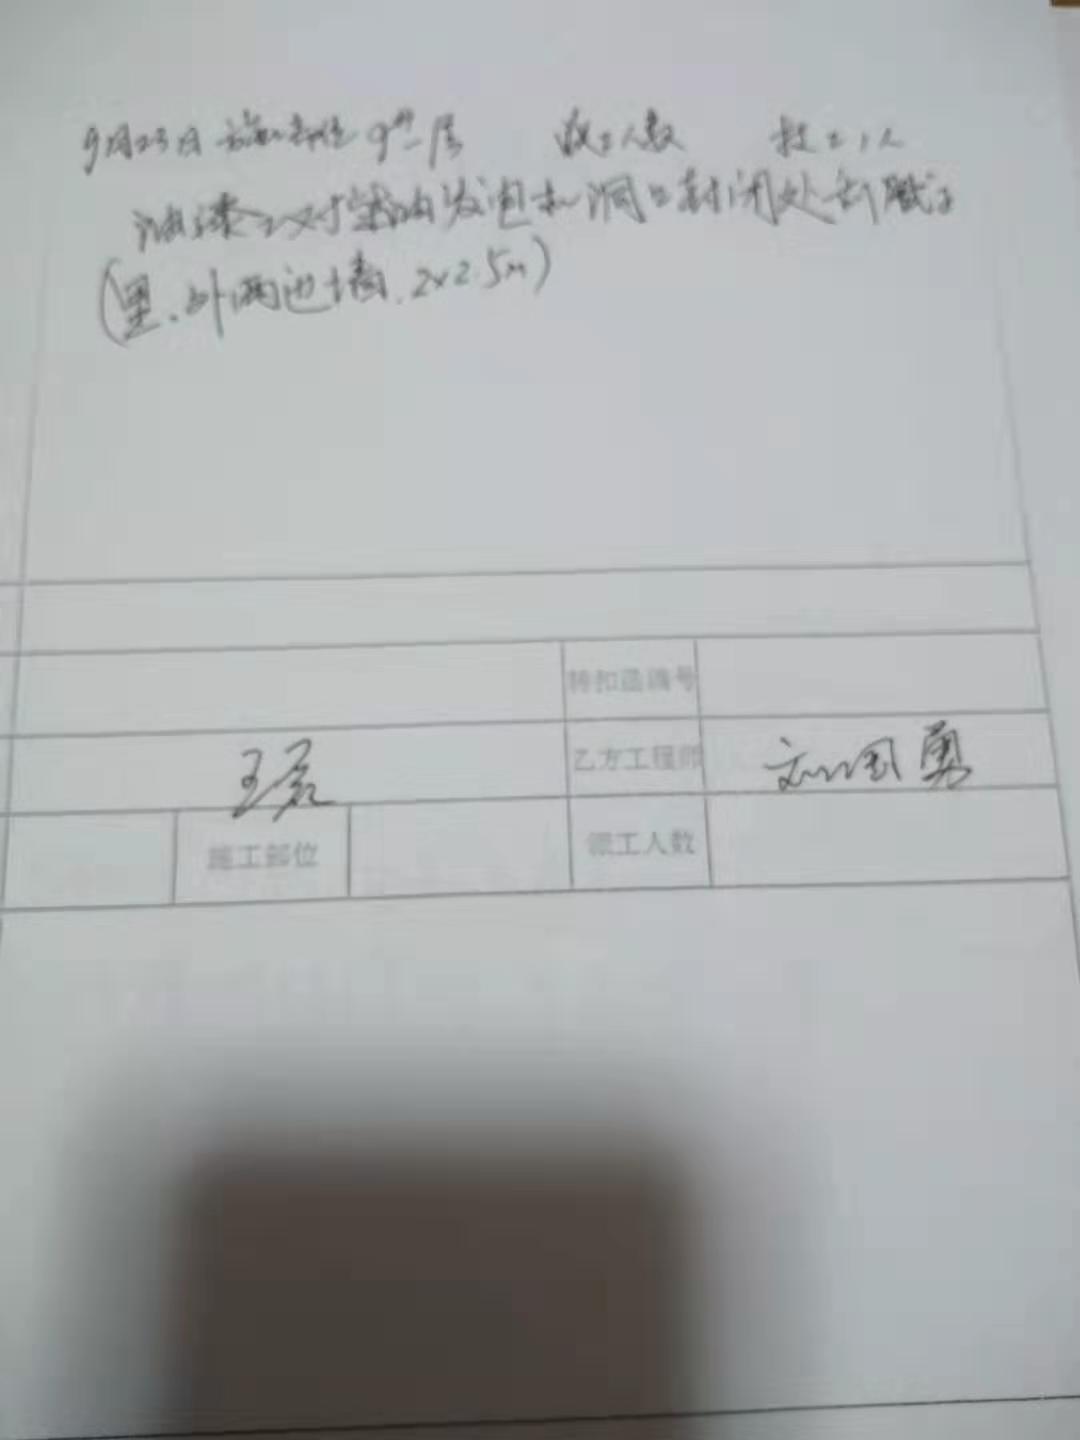 9月23日 施工部位 9#一层 派工人数 技工1人
油漆工对 发泡和洞口封闭处刮腻子
(里、外两边墙, 2×2.5m)
转扣函编号
王 乙方工程师 刘国勇
施工部位 派工人数